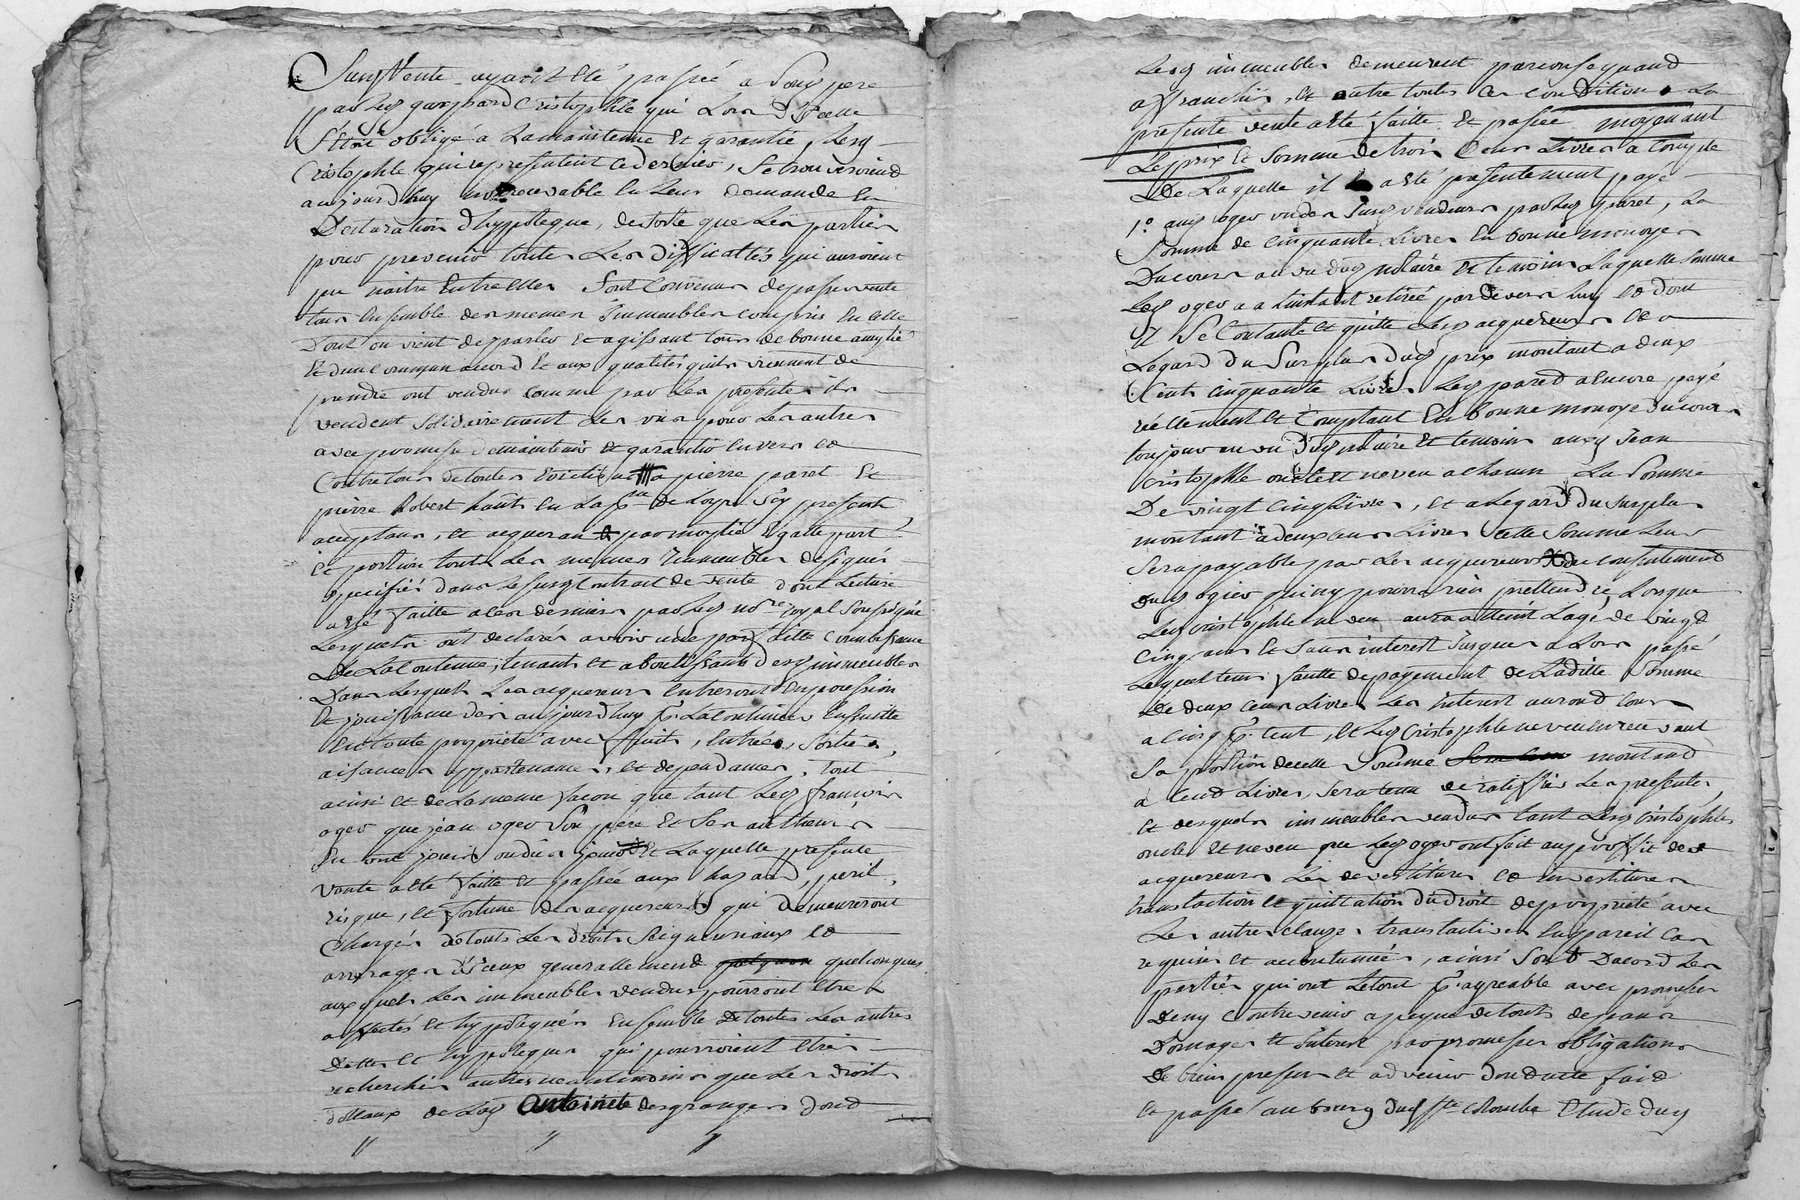 Susd Vente ayant été passée a Son pere
par lesd gaspard Cristophle qui Lors D'Icelle
S'étoit obligé a La maintenue Et garantie, Lesd
Cristophle qui représentent ce dernier, Se trouveroient
aujourd'huy non recevable En Leur demande En
Declaration d'hypoteque, de sorte que Les parties
pour prevenir toutes Les Difficultés qui auroient
pu naitre Entre Elles Sont Convenus de passer vente
tous Ensemble des memes Immeubles compris En Celle
Dont on vient de parler Et agissant tous de bonne amitié
Et d'un Commun acord Et aux qualités qu'ils viennent de
prendre ont vendus comme par Les presentes ils
vendent Solidairement Les uns pour Les autres
avec promesse de maintenir et garantir Envers et
Contre tous de toutes Evictions a pierre paret Et
pierre Robert habts En La psse de Loyre Icy presents
acceptans, et acquerans par moytié Egalle part
Et portion touts Les memes Immeubles designés
specifiés dans Le susd Contrat de vente dont Lecture
a été faitte a ces derniers par Lesd nore royal Soussigné
Lesquels ont declarés avoir une parfaitte Connoissance
De La Contenue, tenants et aboutissants desd immeubles
Dans Lesquels Les acquereurs Entreront En possession
Et jouissance dès aujourd'huy pr La Continuer Ensuitte
En toute proprieté avec fruits, Entrées, Sorties,
aisances appartenances, et dependances, tout
ainsi et de La meme facon que tant Lesd francois
oger que jean ogier Son pere Et Ses autheurs
En ont jouis ou du jouir Et Laquelle presente
vente a été faitte Et passée aux hazard, peril,
risque, et fortune des acquereurs qui demeureront
Chargés de touts Les Droits Seigneuriaux et
arrerages D'iceux generallement quelconques
auxquels Les immeubles vendus pourront Etre
affectés et hypotequés Ensemble de toutes Les autres
Dettes et hypoteques qui pourroient Etre
recherchés autres neantmoins que Les droits
dottaux de Lad Antoinete desgranges dont
Lesd immeubles demeurent par consequand
affranchis, et outre toutes Ces Conditions La
presente vente a été faitte Et passée moyenant
Le prix Et Somme de trois Cens Livres a Compte
De Laquelle il a été presentement payé
1° aux oger un des susd vendeurs par Lesd paret, La
Somme de Cinquante Livres En bonne monoyes
Du cours au vu dud notaire et temoins Laquelle Somme
Lesd oger a a L'instant retirée par devers luy et dont
Il Se Contante et quitte Lesd acquereurs Et a
L'egard du Surplus dud prix montant a deux
Cents cinquante Livres Lesd paret a Encore payé
réellement et Comptant En bonne monoye Du cours
toujours au vu Dud notaire Et temoins auxd Jean
Cristophle oncle et neveu a chacun La Somme
De vingt Cinq Livres, et a L'egard Du surplus
montant a deux cens Livres cette Somme Leur
Sera payable par Les acquereurs du consentement
dud ogier qui n'y pourra rien prettendre, Lorsque
Lesd Cristophle neveu aura atteint L'age de vingt
Cinq ans Et Sans interest Jusques a Lors passé
Lequel tems faute de payement de Laditte Somme
De deux cens Livres Les interest auront cours
a Cinq pr Cent, et Lesd Cristophle neveu En recevant
Sa portion de cette Somme montant
a Cent Livres, Sera tenu de ratiffier Les presentes
Et desquels immeubles vendus tant Lesd Cristophle
oncle Et neveu que Lesd oger ont fait au proffit des
acquereurs Les devestitures et investitures
translaction et quittation du droit de proprieté avec
Les autres clauses translatives En pareil Cas
requises et acoutumées, ainsi Sont D'acord Les
parties qui ont Le tout pr agreable avec promesses
De n'y Contrevenir a peyne de touts depans
Domages Et Interest par promesses obligations
De biens presens et advenir dont acte fait
Et passé au bourg dud Ste Colombe Etude dud